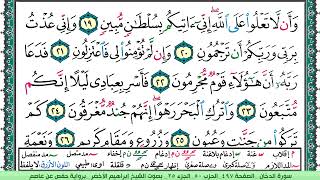 وَأَن لَّا تَعْلُوا۟ عَلَى ٱللَّهِ إِنِّىٓ ءَاتِيكُم بِسُلْطَٰنٍ مُّبِينٍ ١٩ وَإِنِّى عُذْتُ
بِرَبِّى وَرَبِّكُمْ أَن تَرْجُمُونِ ٢٠ وَإِن لَّمْ تُؤْمِنُوا۟ لِى فَٱعْتَزِلُونِ ٢١ فَدَعَا
رَبَّهُۥٓ أَنَّ هَٰٓؤُلَآءِ قَوْمٌ مُّجْرِمُونَ ٢٢ فَأَسْرِ بِعِبَادِى لَيْلًا إِنَّكُم
مُّتَّبَعُونَ ٢٣ وَٱتْرُكِ ٱلْبَحْرَ رَهْوًا إِنَّهُمْ جُندٌ مُّغْرَقُونَ ٢٤ كَمْ
تَرَكُوا۟ مِن جَنَّٰتٍ وَعُيُونٍ ٢٥ وَزُرُوعٍ وَمَقَامٍ كَرِيمٍ ٢٦ وَنَعْمَةٍ
سورة الدخان الصفحة ٤٩٧ الحزب ٥٠ الجزء ٢٥ بصوت الشيخ ابراهيم الأخضر برواية حفص عن عاصم